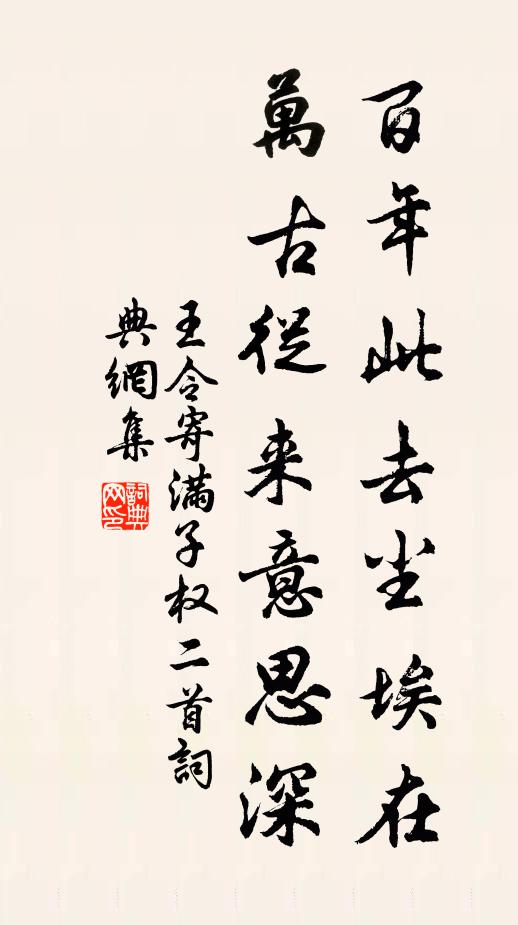 百年此去尘埃在
萬古從来意思深
王令寄滿子权二首詞
典網集
詞典
网印